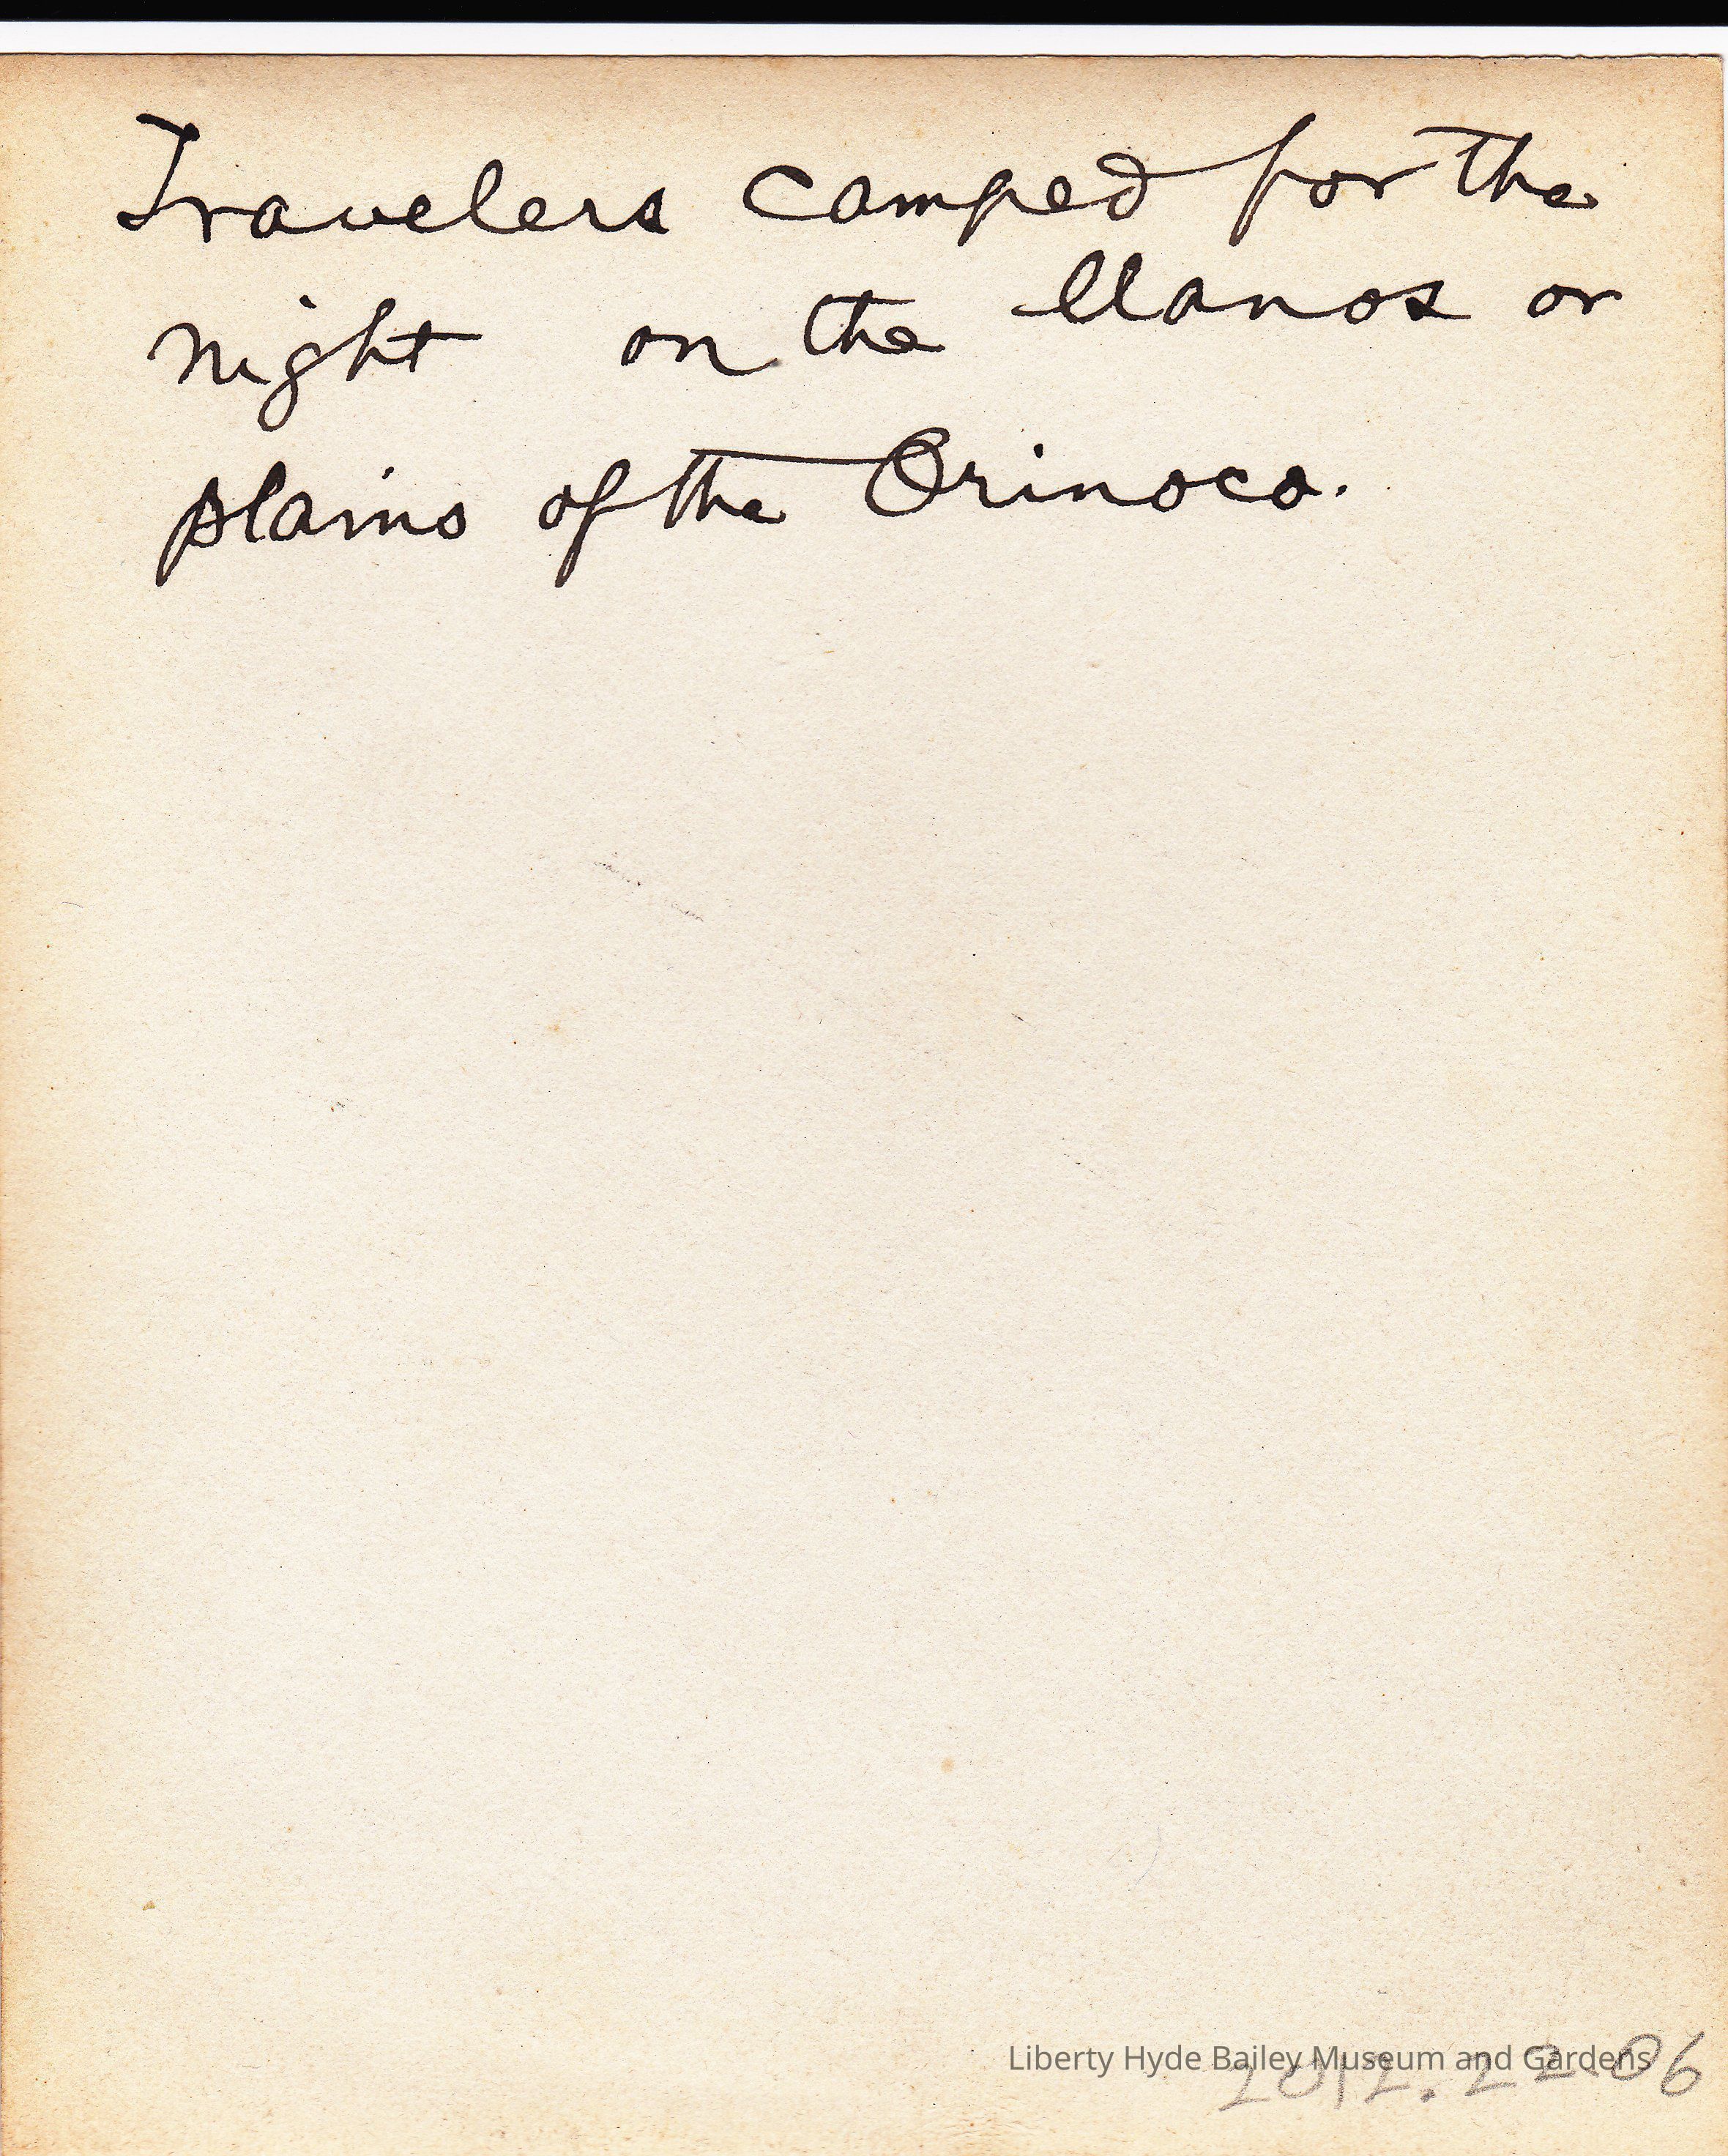 Travelers camped for the
night on the llanos or
plains of the Orinoco.
Liberty Hyde Bailey Museum and Gardens
2012.22.06